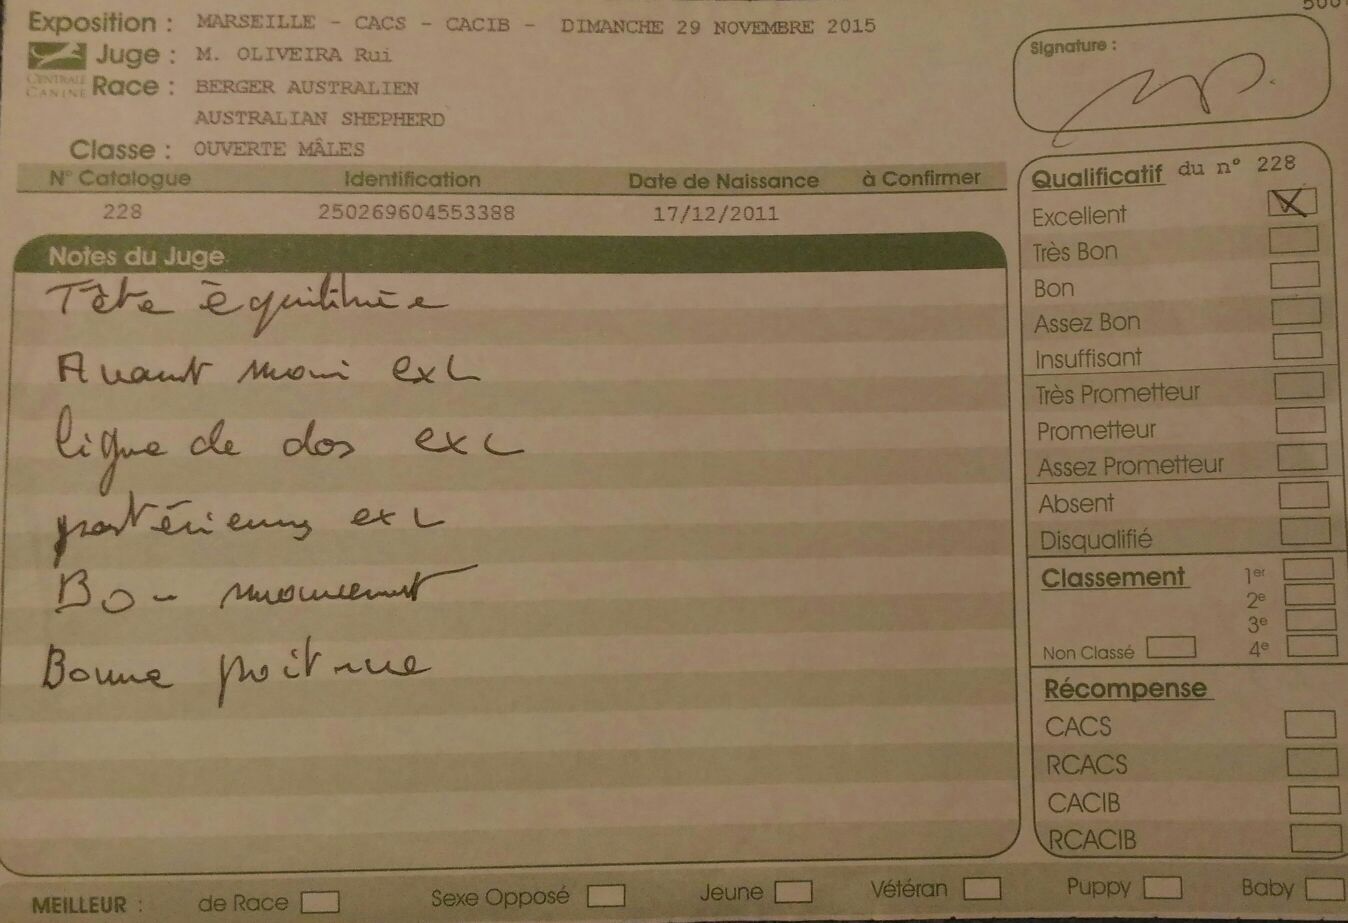 Exposition : MARSEILLE - CACS - CACIB - DIMANCHE 29 NOVEMBRE 2015
Juge : M. OLIVEIRA Rui
CENTRALE CANINE
Race : BERGER AUSTRALIEN
AUSTRALIAN SHEPHERD
Classe : OUVERTE MÂLES
N° Catalogue Identification Date de Naissance à Confirmer
228 250269604553388 17/12/2011
Notes du Juge
Tête équilibrée
Avant main exL
ligne de dos exc
postérieurs exL
Bon mouvement
Bonne poitrine
Signature :
Qualificatif du n° 228
Excellent X
Très Bon
Bon
Assez Bon
Insuffisant
Très Prometteur
Prometteur
Assez Prometteur
Absent
Disqualifié
Classement 1er
2e
3e
Non Classé 4e
Récompense
CACS
RCACS
CACIB
RCACIB
MEILLEUR : de Race Sexe Opposé Jeune Vétéran Puppy Baby